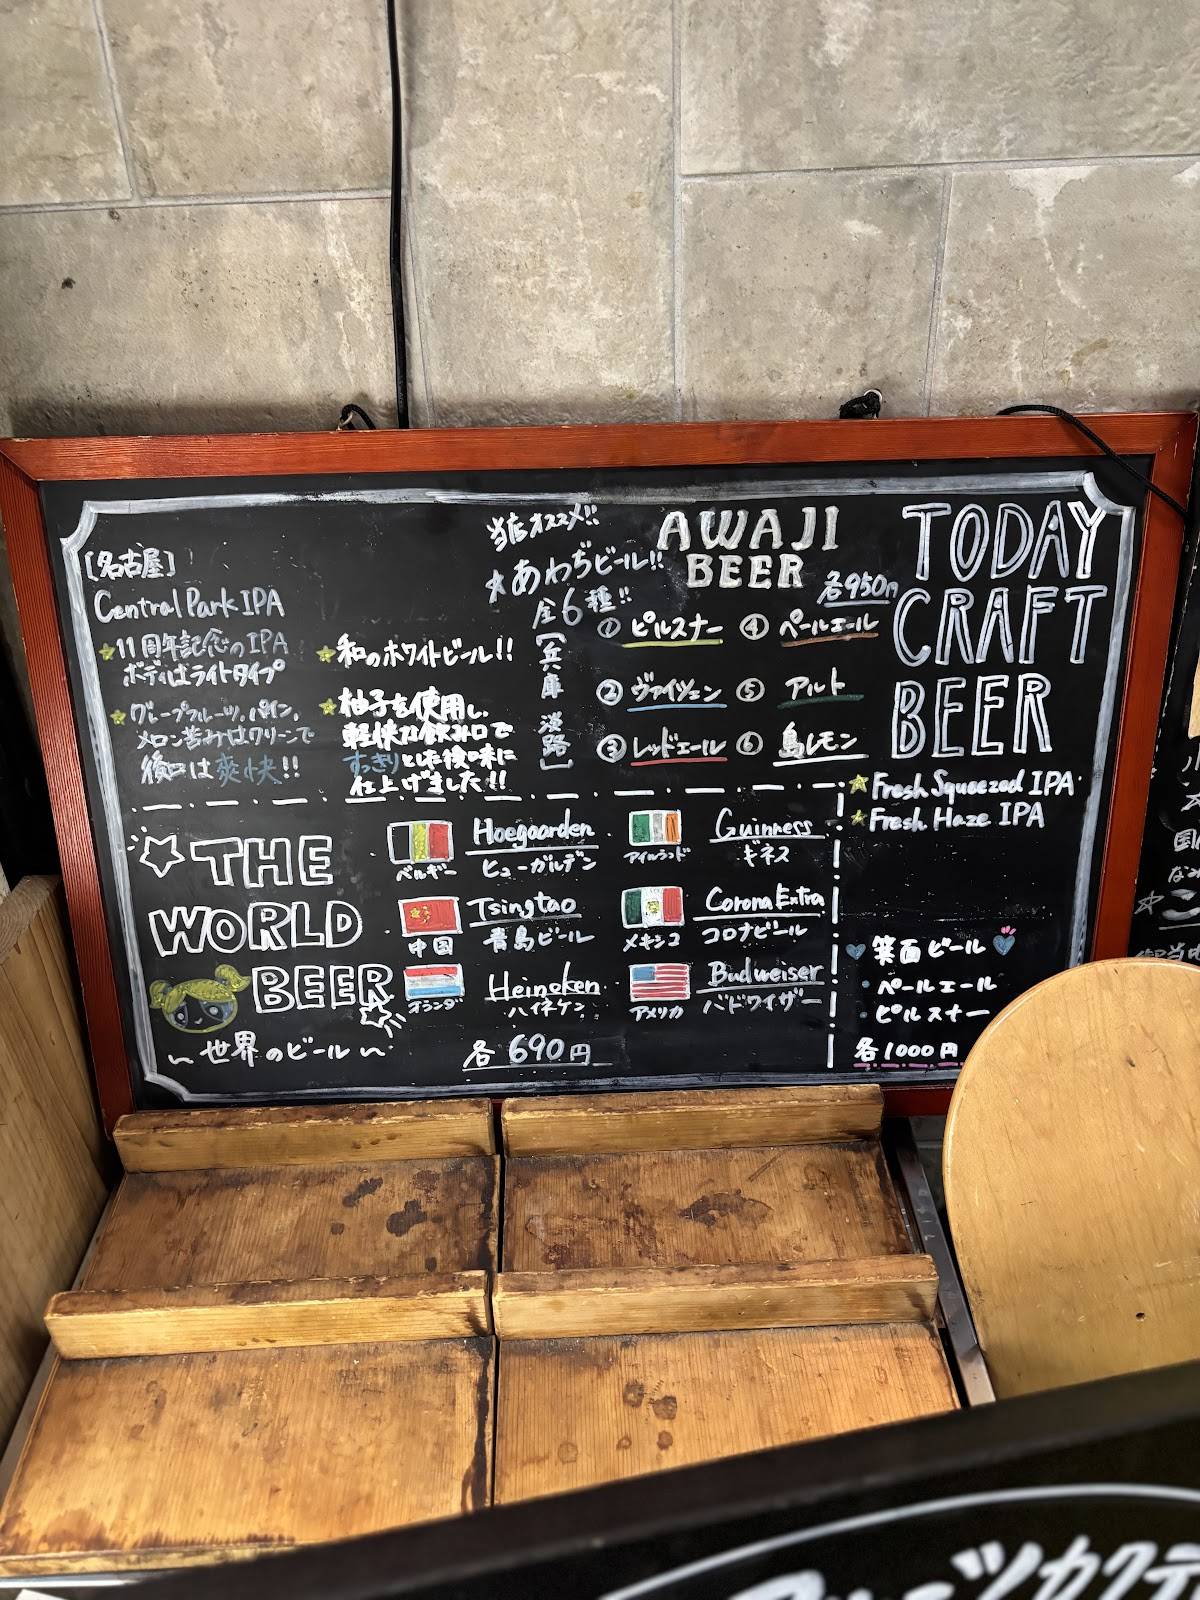 [名古屋]
Central Park IPA
11周年記念のIPA
ボディはライトタイプ
グレープフルーツ、パイン、
メロン苦みはクリーンで
後口は爽快!!
和のホワイトビール!!
柚子を使用し、
軽快な飲み口で
すっきりとした後味に
仕上げました!!
当店オススメ!!
★あわぢビール!!
全6種!!
[兵庫 淡路]
AWAJI
BEER
各950円
① ピルスナー
② ヴァイツェン
③ レッドエール
④ ペールエール
⑤ アルト
⑥ 島レモン
TODAY
CRAFT
BEER
Fresh Squeezed IPA
Fresh Haze IPA
箕面ビール
・ペールエール
・ピルスナー
各1000円
THE
WORLD
BEER
~世界のビール~
ベルギー
Hoegaarden
ヒューガルデン
中国
Tsingtao
青島ビール
オランダ
Heineken
ハイネケン
アイルランド
Guinness
ギネス
メキシコ
Corona Extra
コロナビール
アメリカ
Budweiser
バドワイザー
各690円
国